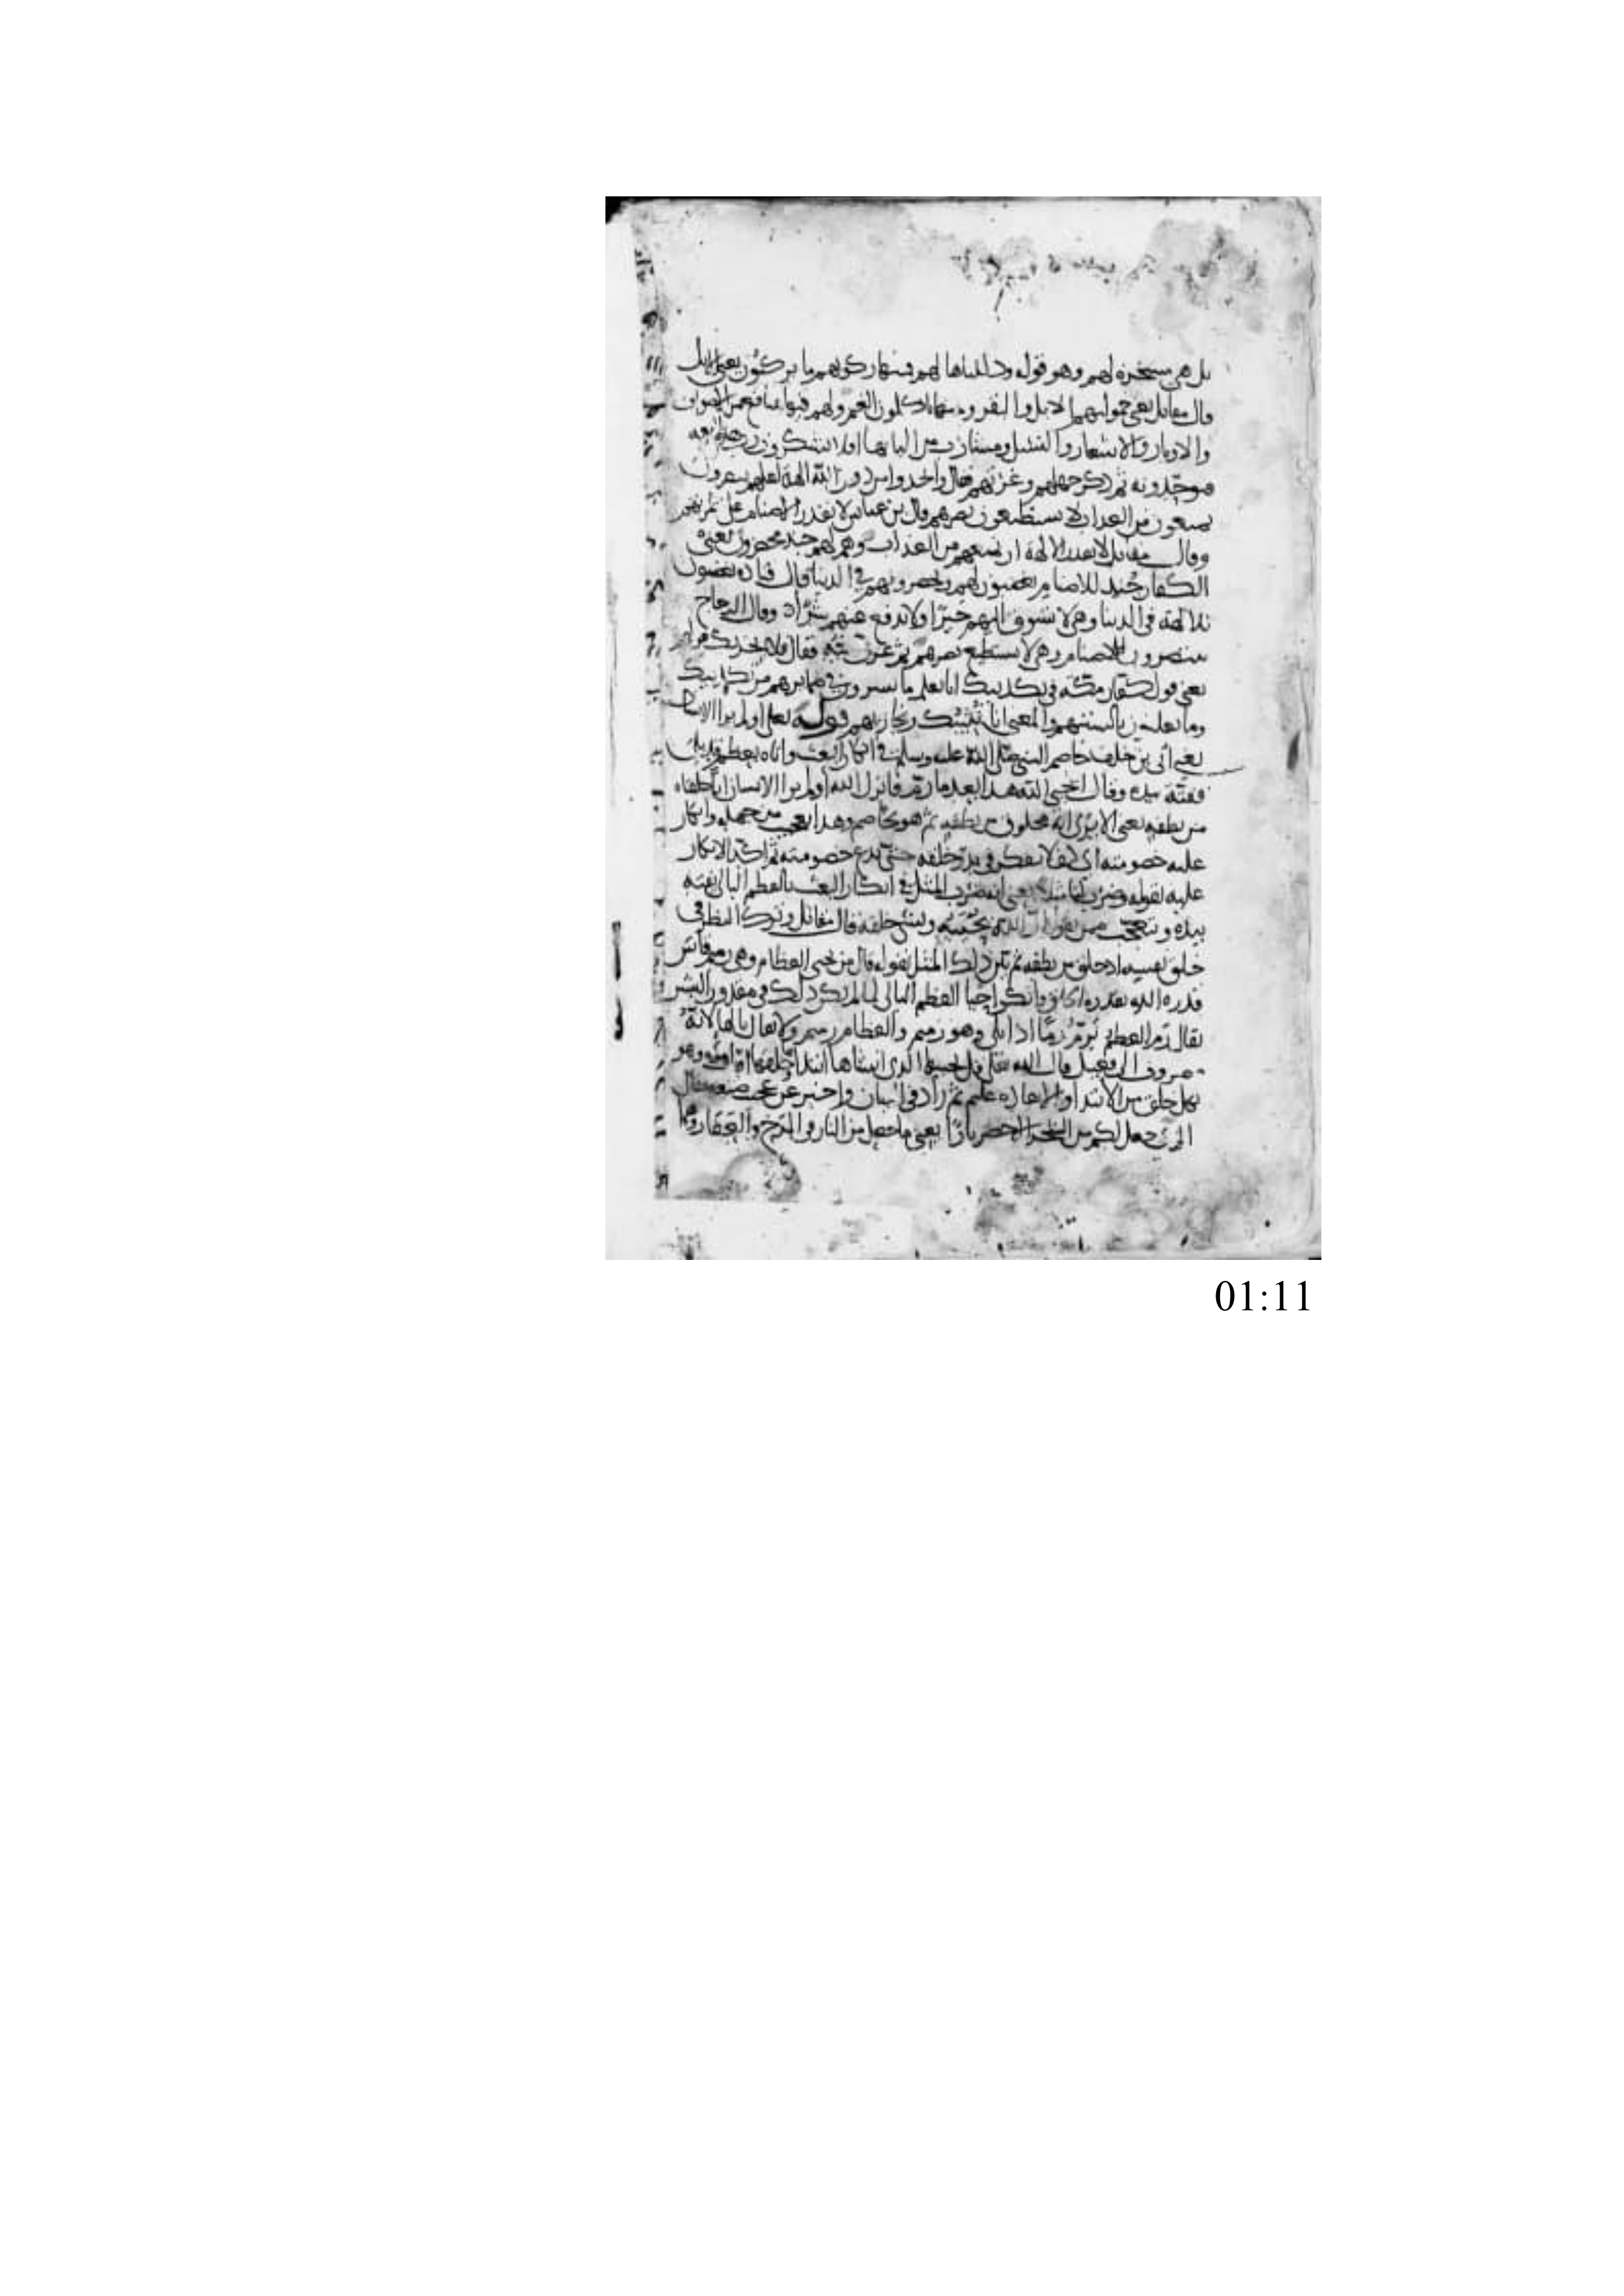 بل هي مسخرة لهم وهو قوله وذللناها لهم فمنها ركوبهم ما يركبون يعني الابل
قال مقاتل يعني حمولتهم الابل والبقر ومنها ياكلون الغنم ولهم فيها منافع من الاصواف
والاوبار والاشعار والنسل ومشارب من البانها افلا يشكرون رب هذه النعم
فيوحدونه ثم ذكر جهلهم وغرتهم فقال واتخذوا من دون الله الهة لعلهم ينصرون
يمنعون من العذاب لا يستطيعون نصرهم قال بن عباس لا تقدر الاصنام على نصرهم
وقال مقاتل لا تقدر الالهة ان تمنعهم من العذاب وهم لهم جند محضرون يعني
الكفار جند للاصنام يغضبون لهم ويحضرونهم في الدنيا قال قتادة يغضبون
للالهة في الدنيا وهي لا تسوق اليهم خيرا ولا تدفع عنهم شرا وقال الزجاج
ينتصرون للاصنام وهي لا تستطيع نصرهم ثم عزى نبيه فقال فلا يحزنك قولهم
يعني قول كفار مكة في تكذيبك انا نعلم ما يسرون في ضمايرهم من تكذيبك
وما يعلنون بالسنتهم والمعنى انا نثيبك ونجازيهم قوله تعالى اولم ير الانسان
يعني ابي بن خلف خاصم النبي صلى الله عليه وسلم في انكار البعث واتاه بعظم قد بلي
ففته بيده وقال اتحيي الله هذا بعد ما رم فانزل الله اولم ير الانسان انا خلقناه
من نطفة يعني الا يرى انه مخلوق من نطفة ثم هو يخاصم وهذا تعجب من جهله وانكار
عليه خصومته اي كيف لا يتفكر في بدو خلقه حتى يدع خصومته ثم اكد الانكار
عليه بقوله وضرب لنا مثلا يعني انه ضرب المثل في انكار البعث بالعظم البالي يفته
بيده ويتعجب ممن يقول ان الله يحييه ونسي خلقه قال مقاتل وترك النظر في
خلق نفسه اذ خلق من نطفة ثم بين ذلك المثل بقوله قال من يحيي العظام وهي رميم قاس
قدرة الله بقدرة الخلق فانكر احيا العظم البالي لما لم يكن ذلك في مقدور البشر
يقال رم العظم يرم رما اذا بلي وهو رميم والعظام رميم ولا يقال بالها لانه
مصروف الى فعيل قال الله تعالى قل يحييها الذي انشاها ابتدا خلقها اول مرة وهو
بكل خلق من الابتدا والاعادة عليم ثم زاد في البيان واخبر عن عجيب صنعه فقال
الذي جعل لكم من الشجر الاخضر نارا يعني ما جعل من النار في المرخ والعفار وهما
01:11